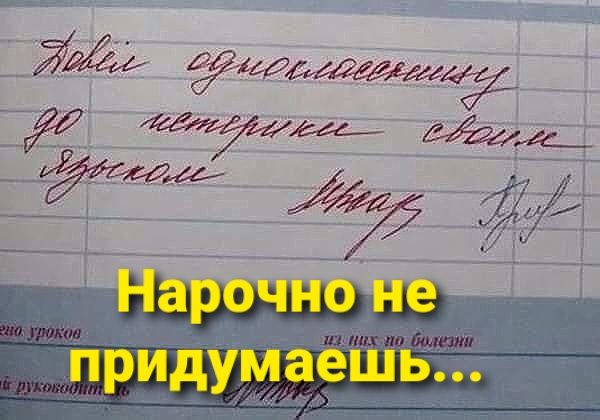 Довёл одноклассницу
до истерики своим
языком
Нарочно не
придумаешь...
ено уроков
из них по болезни
й руководитель